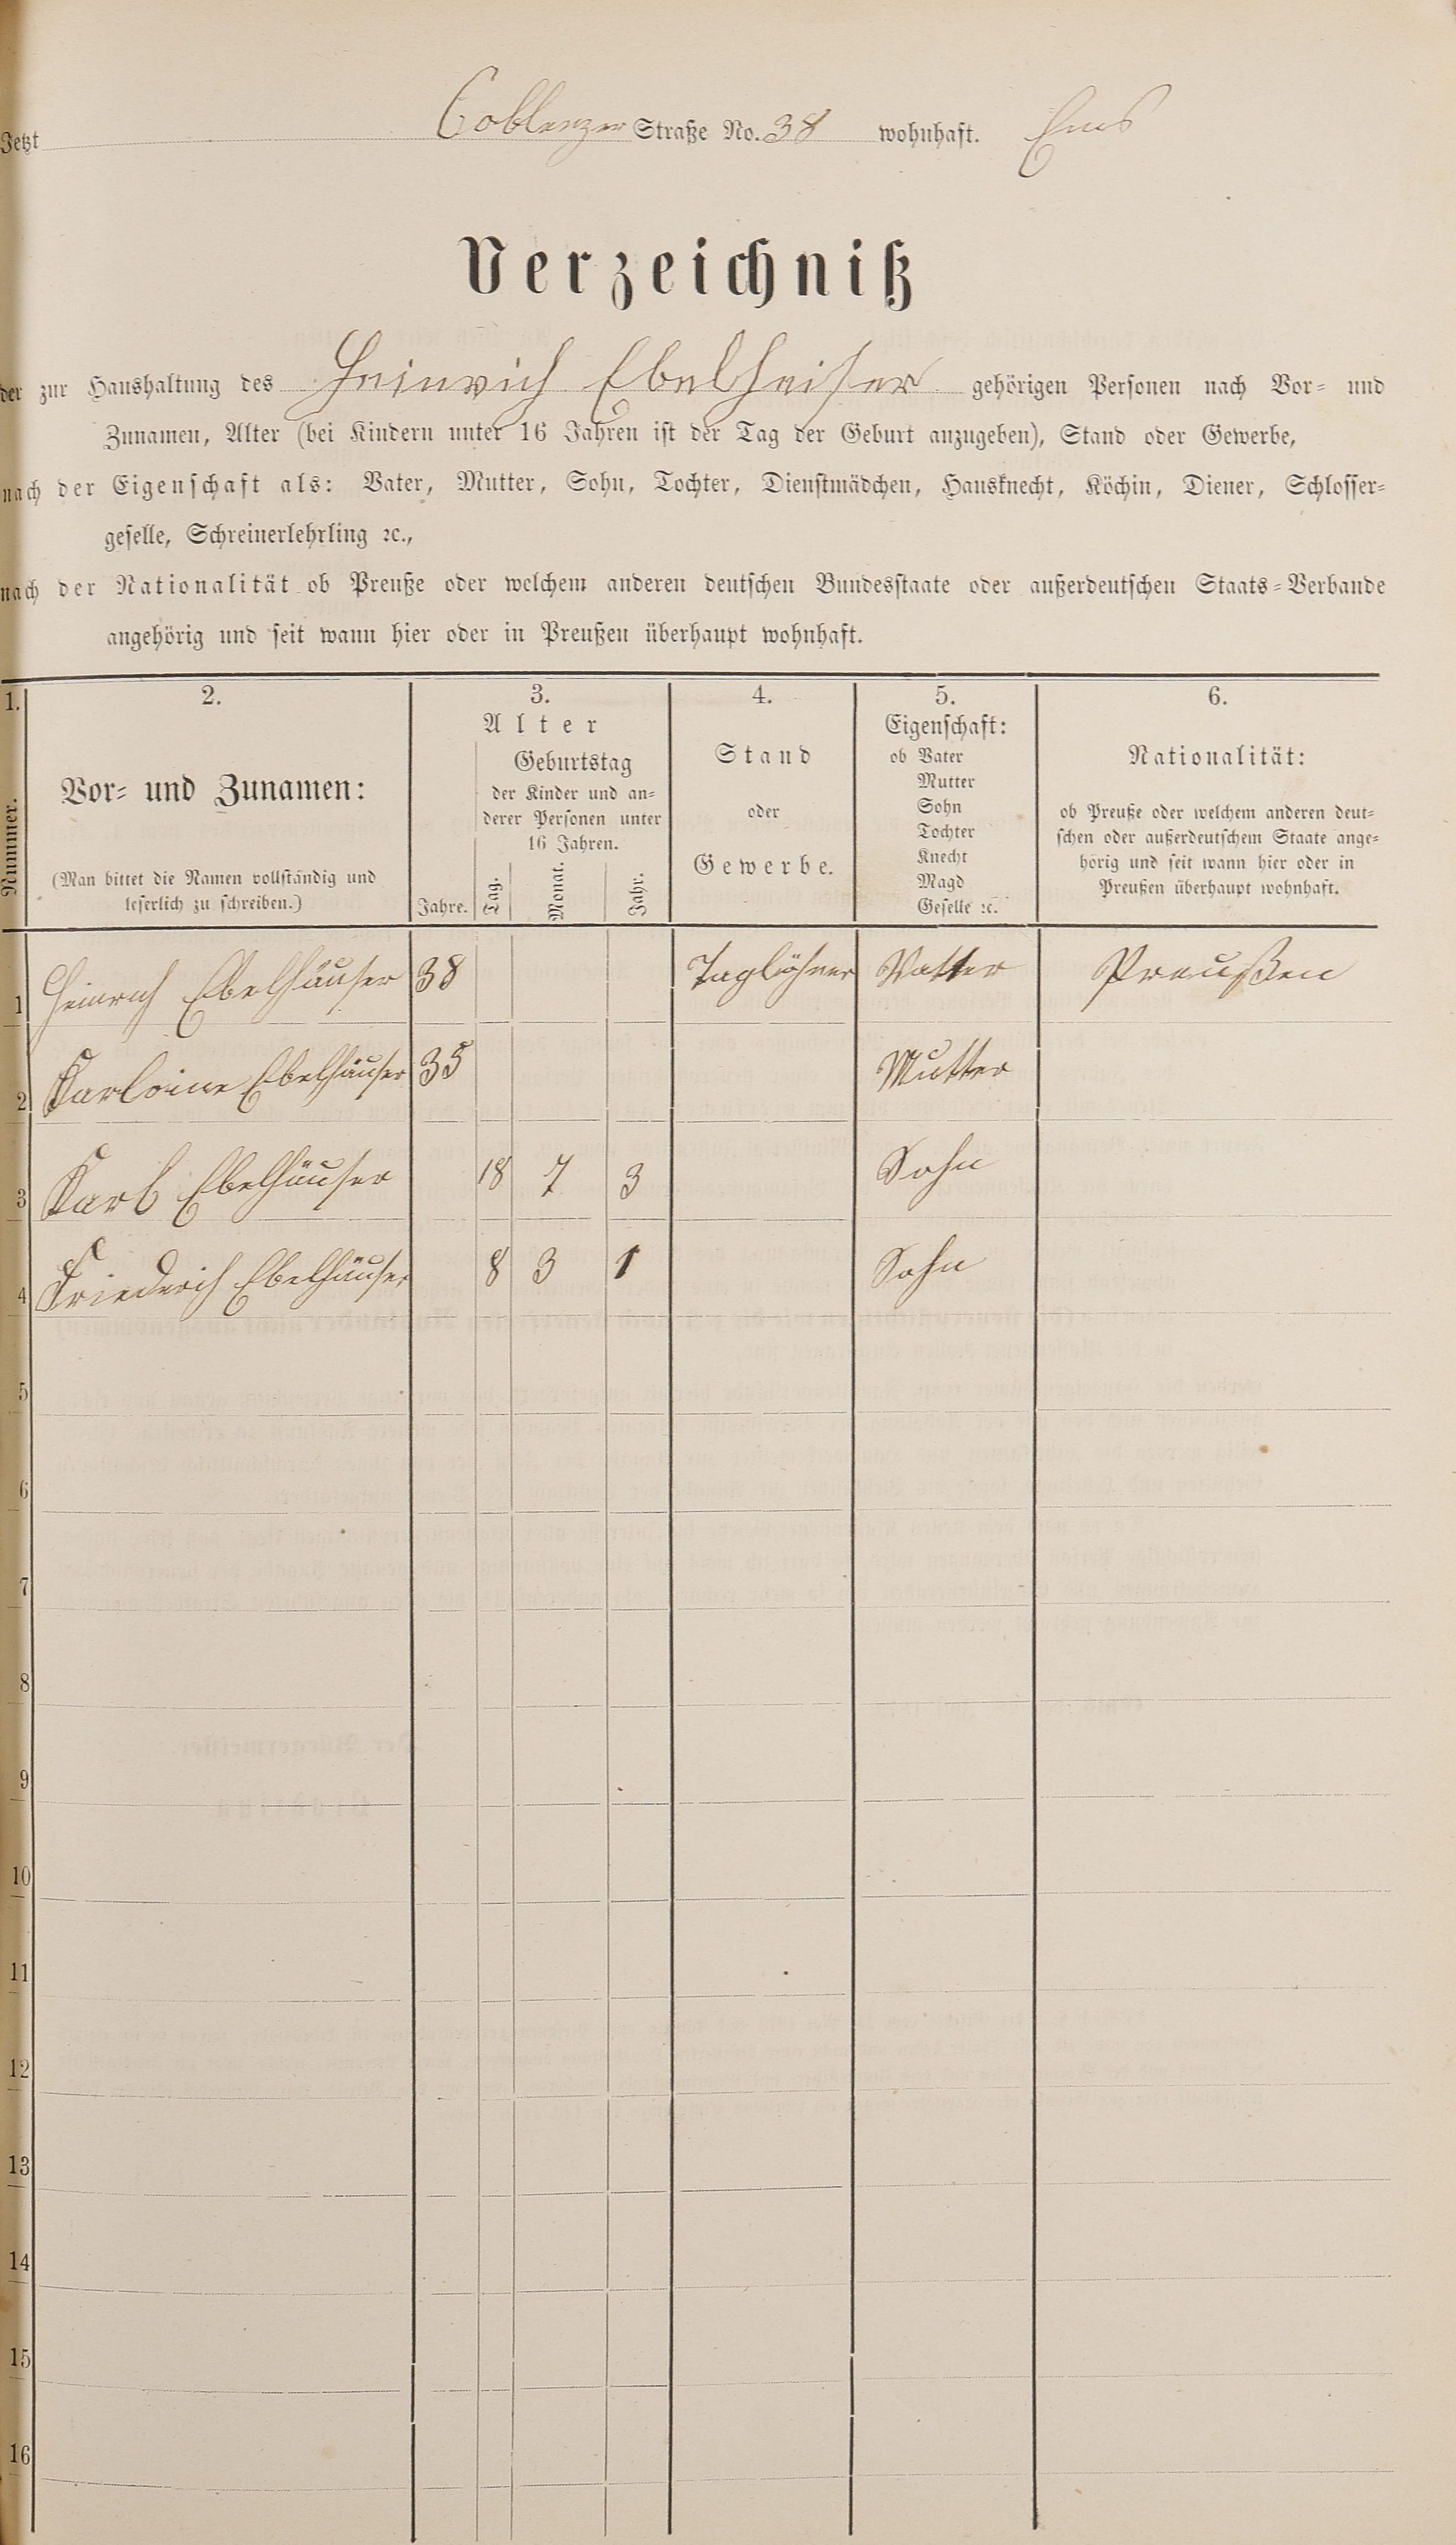 Jetzt Coblenzer Straße No. 38 wohnhaft. Ems
Verzeichniß
der zur Haushaltung des Heinrich Ebelheiser gehörigen Personen nach Vor- und
Zunamen, Alter (bei Kindern unter 16 Jahren ist der Tag der Geburt anzugeben), Stand oder Gewerbe,
nach der Eigenschaft als: Vater, Mutter, Sohn, Tochter, Dienstmädchen, Hausknecht, Köchin, Diener, Schlosser-
geselle, Schreinerlehrling ꝛc.,
nach der Nationalität ob Preuße oder welchem anderen deutschen Bundesstaate oder außerdeutschen Staats-Verbande
angehörig und seit wann hier oder in Preußen überhaupt wohnhaft.
1.
Nummer.
2.
Vor- und Zunamen:
(Man bittet die Namen vollständig und
leserlich zu schreiben.)
3.
Alter
Jahre.
Geburtstag
der Kinder und an-
derer Personen unter
16 Jahren.
Tag. Monat. Jahr.
4.
Stand
oder
Gewerbe.
5.
Eigenschaft:
ob Vater
Mutter
Sohn
Tochter
Knecht
Magd
Geselle ꝛc.
6.
Nationalität:
ob Preuße oder welchem anderen deut-
schen oder außerdeutschem Staate ange-
hörig und seit wann hier oder in
Preußen überhaupt wohnhaft.
1 Heinrich Ebelhäuser 38 Taglöhner Vatter Preußen
2 Karloine Ebelhäuser 35 Mutter
3 Karl Ebelhäuser 18 7 3 Sohn
4 Friederich Ebelhäuser 8 3 1 Sohn
5
6
7
8
9
10
11
12
13
14
15
16